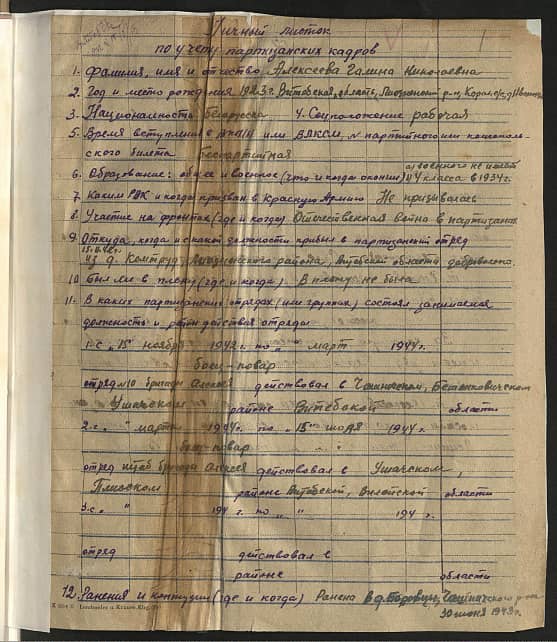 Личный листок
по учету партизанских кадров
1. Фамилия, имя и отчество Алексеева Галина Николаевна
2. Год и место рождения 1923 г. Витебская область, р-н,
3. Национальность белоруска 4. Соцположение рабочая
5. Время вступления в или ВЛКСМ, № партийного или комсомоль-
ского билета Беспартийная
6. Образование: общее и военное (что и когда окончил) 4 класса в 1934 г.
военного не имеет
7. Каким РВК и когда призван в Красную Армию Не призывалась
8. Участие на фронтах (где и когда) Отечественная война в партизанах
9. Откуда, когда и с какой должности прибыл в партизанский отряд
Из д. района, Витебской области добровольно
10. Был ли в плену (где и когда) В плену не была
11. В каких партизанских отрядах (или группах) состоял занимаемая
должность и район действия отряда
1. с „15" ноября 1942 г. по „ " март 1944 г.
боец-повар
отряд №10 бригады Алексея действовал в Чашникском, Бешенковичском
Ушачском районе Витебской области
2. с „ " марта 1944 г. по „15" июля 1944 г.
боец-повар
отряд штаб бригады Алексея действовал в Ушачском,
Плисском районе Витебской, Вилейской области
3. с „ " 194 г. по „ " 194 г.
отряд действовал в
районе области
12. Ранения и контузии (где и когда) Ранена в д. Боровцы, Чашникского р-на
30 июня 1943 г.